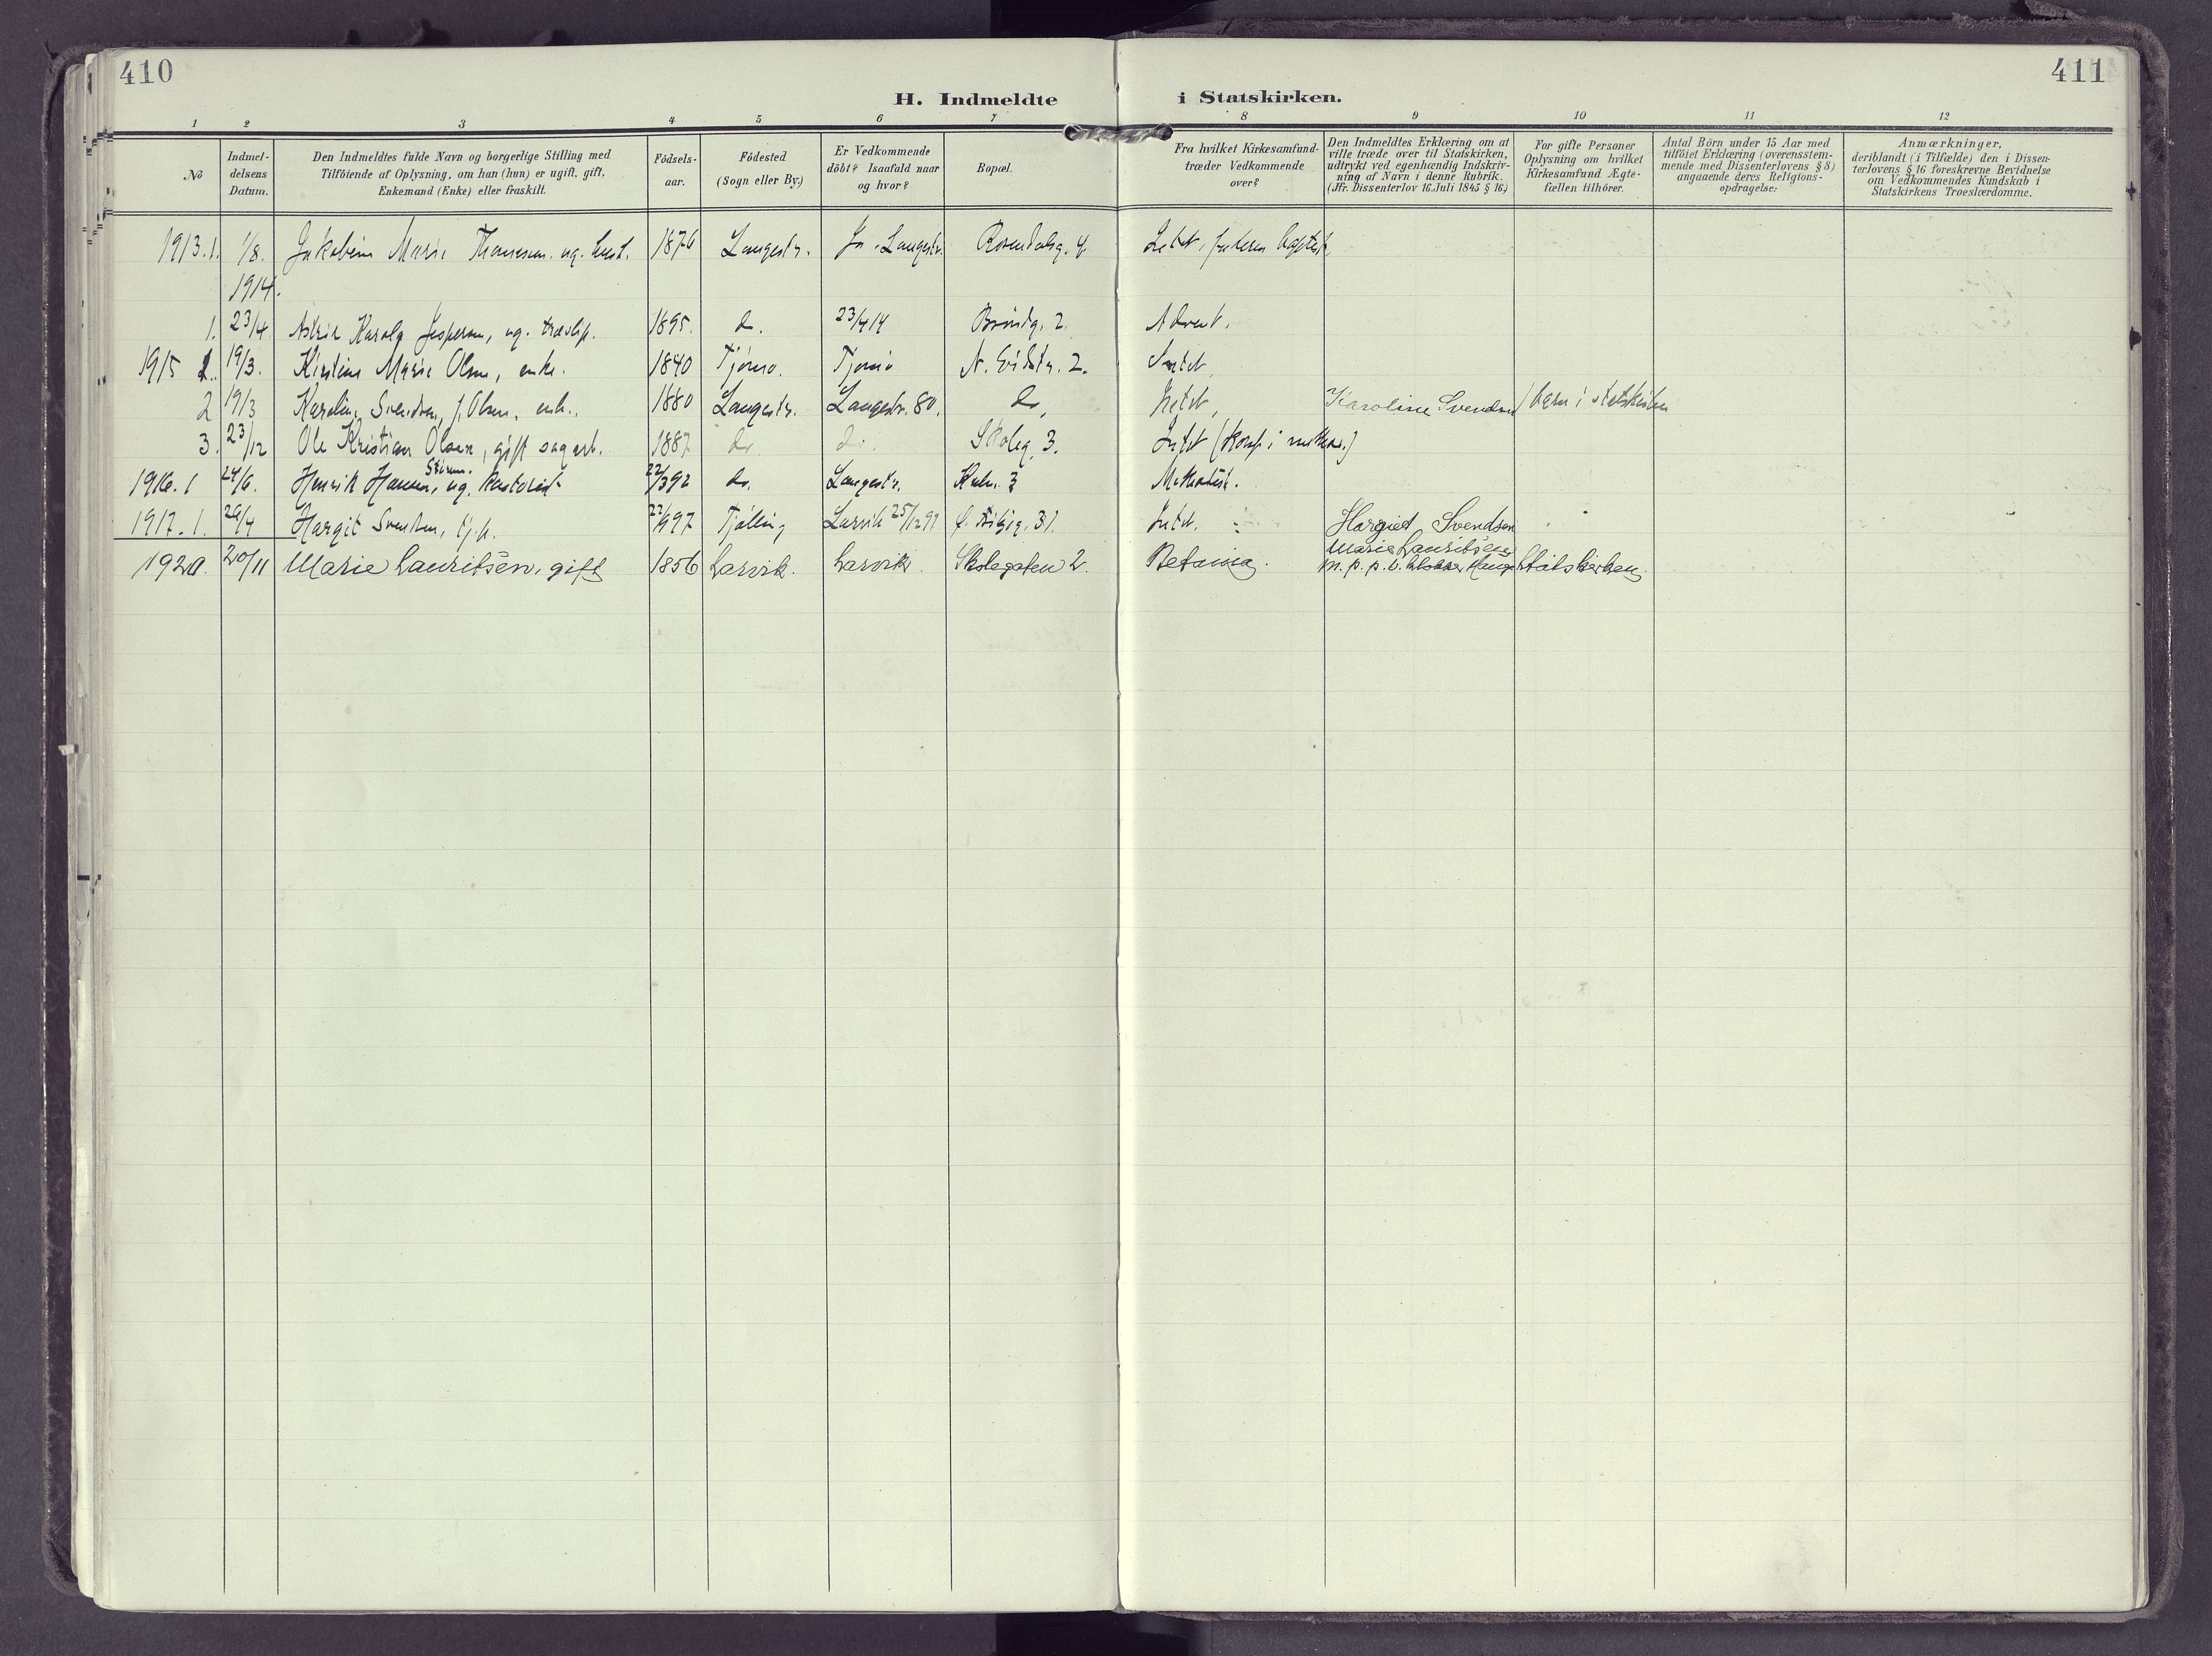 410
H. Indmeldte i Statskirken.
411
1 2 3 4 5 6 7 8 9 10 11 12
No
Indmel-
delsens
Datum.
Den Indmeldtes fulde Navn og borgerlige Stilling med
Tilföiende af Oplysning, om han (hun) er ugift, gift,
Enkemand (Enke) eller fraskilt.
Födsels-
aar.
Födested
(Sogn eller By.)
Er Vedkommende
döbt? Isaafald naar
og hvor?
Bopæl.
Fra hvilket Kirkesamfund
træder Vedkommende
over?
Den Indmeldtes Erklæring om at
ville træde over til Statskirken,
udtrykt ved egenhændig Indskriv-
ning af Navn i denne Rubrik.
(Jfr. Dissenterlov 16. Juli 1845 § 16.)
For gifte Personer
Oplysning om hvilket
Kirkesamfund Ægte-
fællen tilhörer.
Antal Börn under 15 Aar med
tilföiet Erklæring (overensstem-
mende med Dissenterlovens § 8)
angaaende deres Religions-
opdragelse:
Anmærkninger,
deriblandt (i Tilfælde) den i Dissen-
terlovens § 16 foreskrevne Bevidnelse
om Vedkommendes Kundskab i
Statskirkens Troeslærdomme.
1913. 1. 1/8. Jakobine Marie ug. 1876 Langestr. Ja. Langestr. Rosendalsg. 4 Intet,
1914.
1. 23/4 Jespersen, ug. 1895. do. 23/4 14 2. Advent.
1915 1. 19/3. Kirstine Marie Olsen, enke. 1840 Tjömö. Tjömö 2. Intet,
2 19/3 Karoline Svendsen, f. Olsen, enke. 1880 Langestr. Langestr. 80. do, Intet, Karoline Svendsen i statskirken
3. 23/12 Ole Kristian Olsen, gift 1887 do. do. Skoleg. 3. Intet
1916. 1 24/6. Henrik Hansen, ug. 22/3 92 do. Langestr. 3 Methodist.
1917. 1. 29/4 Hargit Svendsen, 1897 Tjölling Larvik 25/12 97 31. Intet. Hargiet Svendsen
1920. 20/11 Marie Lauritsen, gift 1856 Larvik. Larvik. Skolegaten 2. Betania. Marie Lauritsen
m. p. p. v. Statskirken.